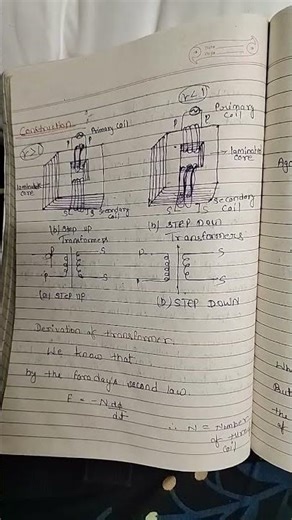 Date
Page
r<1
Construction :
Primary coil
Primary
coil
r>1
P P
P P
laminated
core
laminated
core
Secondary
coil
Secondary
coil
S S
S S
(b) Step up
Transformers
(b) STEP DOWN
Transformers
P S
P S
P S
P S
(a) STEP UP
(b) STEP DOWN
Derivation of transformer.
We know that
by the Faraday's second law.
E = -N dφ
dt
∴ N = Number
of turns
coil
Aga
Wh
But
the
of